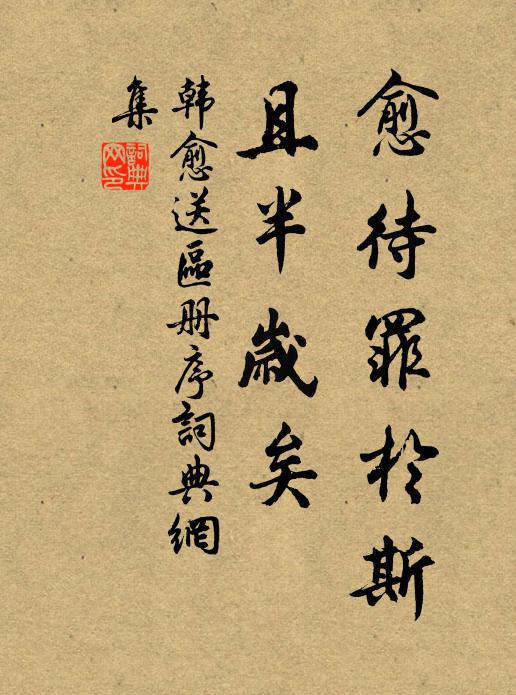 愈待罪於斯
且半歲矣
韩愈送區册序詞典網
集
詞典網印